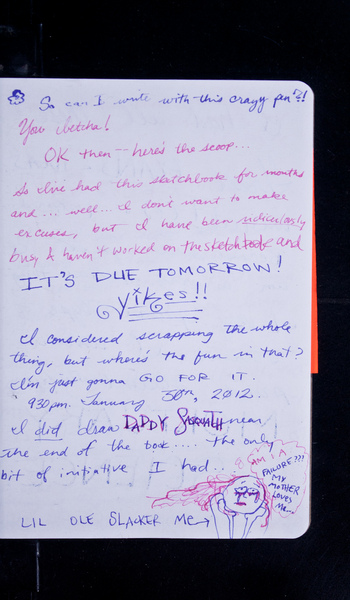 So can I write with this crazy pen?!
You betcha!
OK then -- here's the scoop...
So I've had this sketchbook for months
and ... well... I don't want to make
excuses, but I have been ridiculously
busy & haven't worked on the sketchbook and
IT'S DUE TOMORROW!
Yikes!!
I considered scrapping the whole
thing, but where's the fun in that?
I'm just gonna GO FOR IT.
930pm. January 30th, 2012.
I did draw DADDY near
the end of the book.... the only
bit of initiative I had...
AM I A
FAILURE???
MY
MOTHER
LOVES
ME...
LIL OLE SLACKER ME→